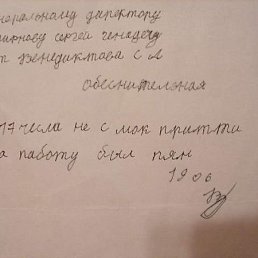 неральному директору
рнову сергей генацечу
от Венедиктова С Л
обеснительная
17 чесла не с мок притти
а работу был пян
19 06